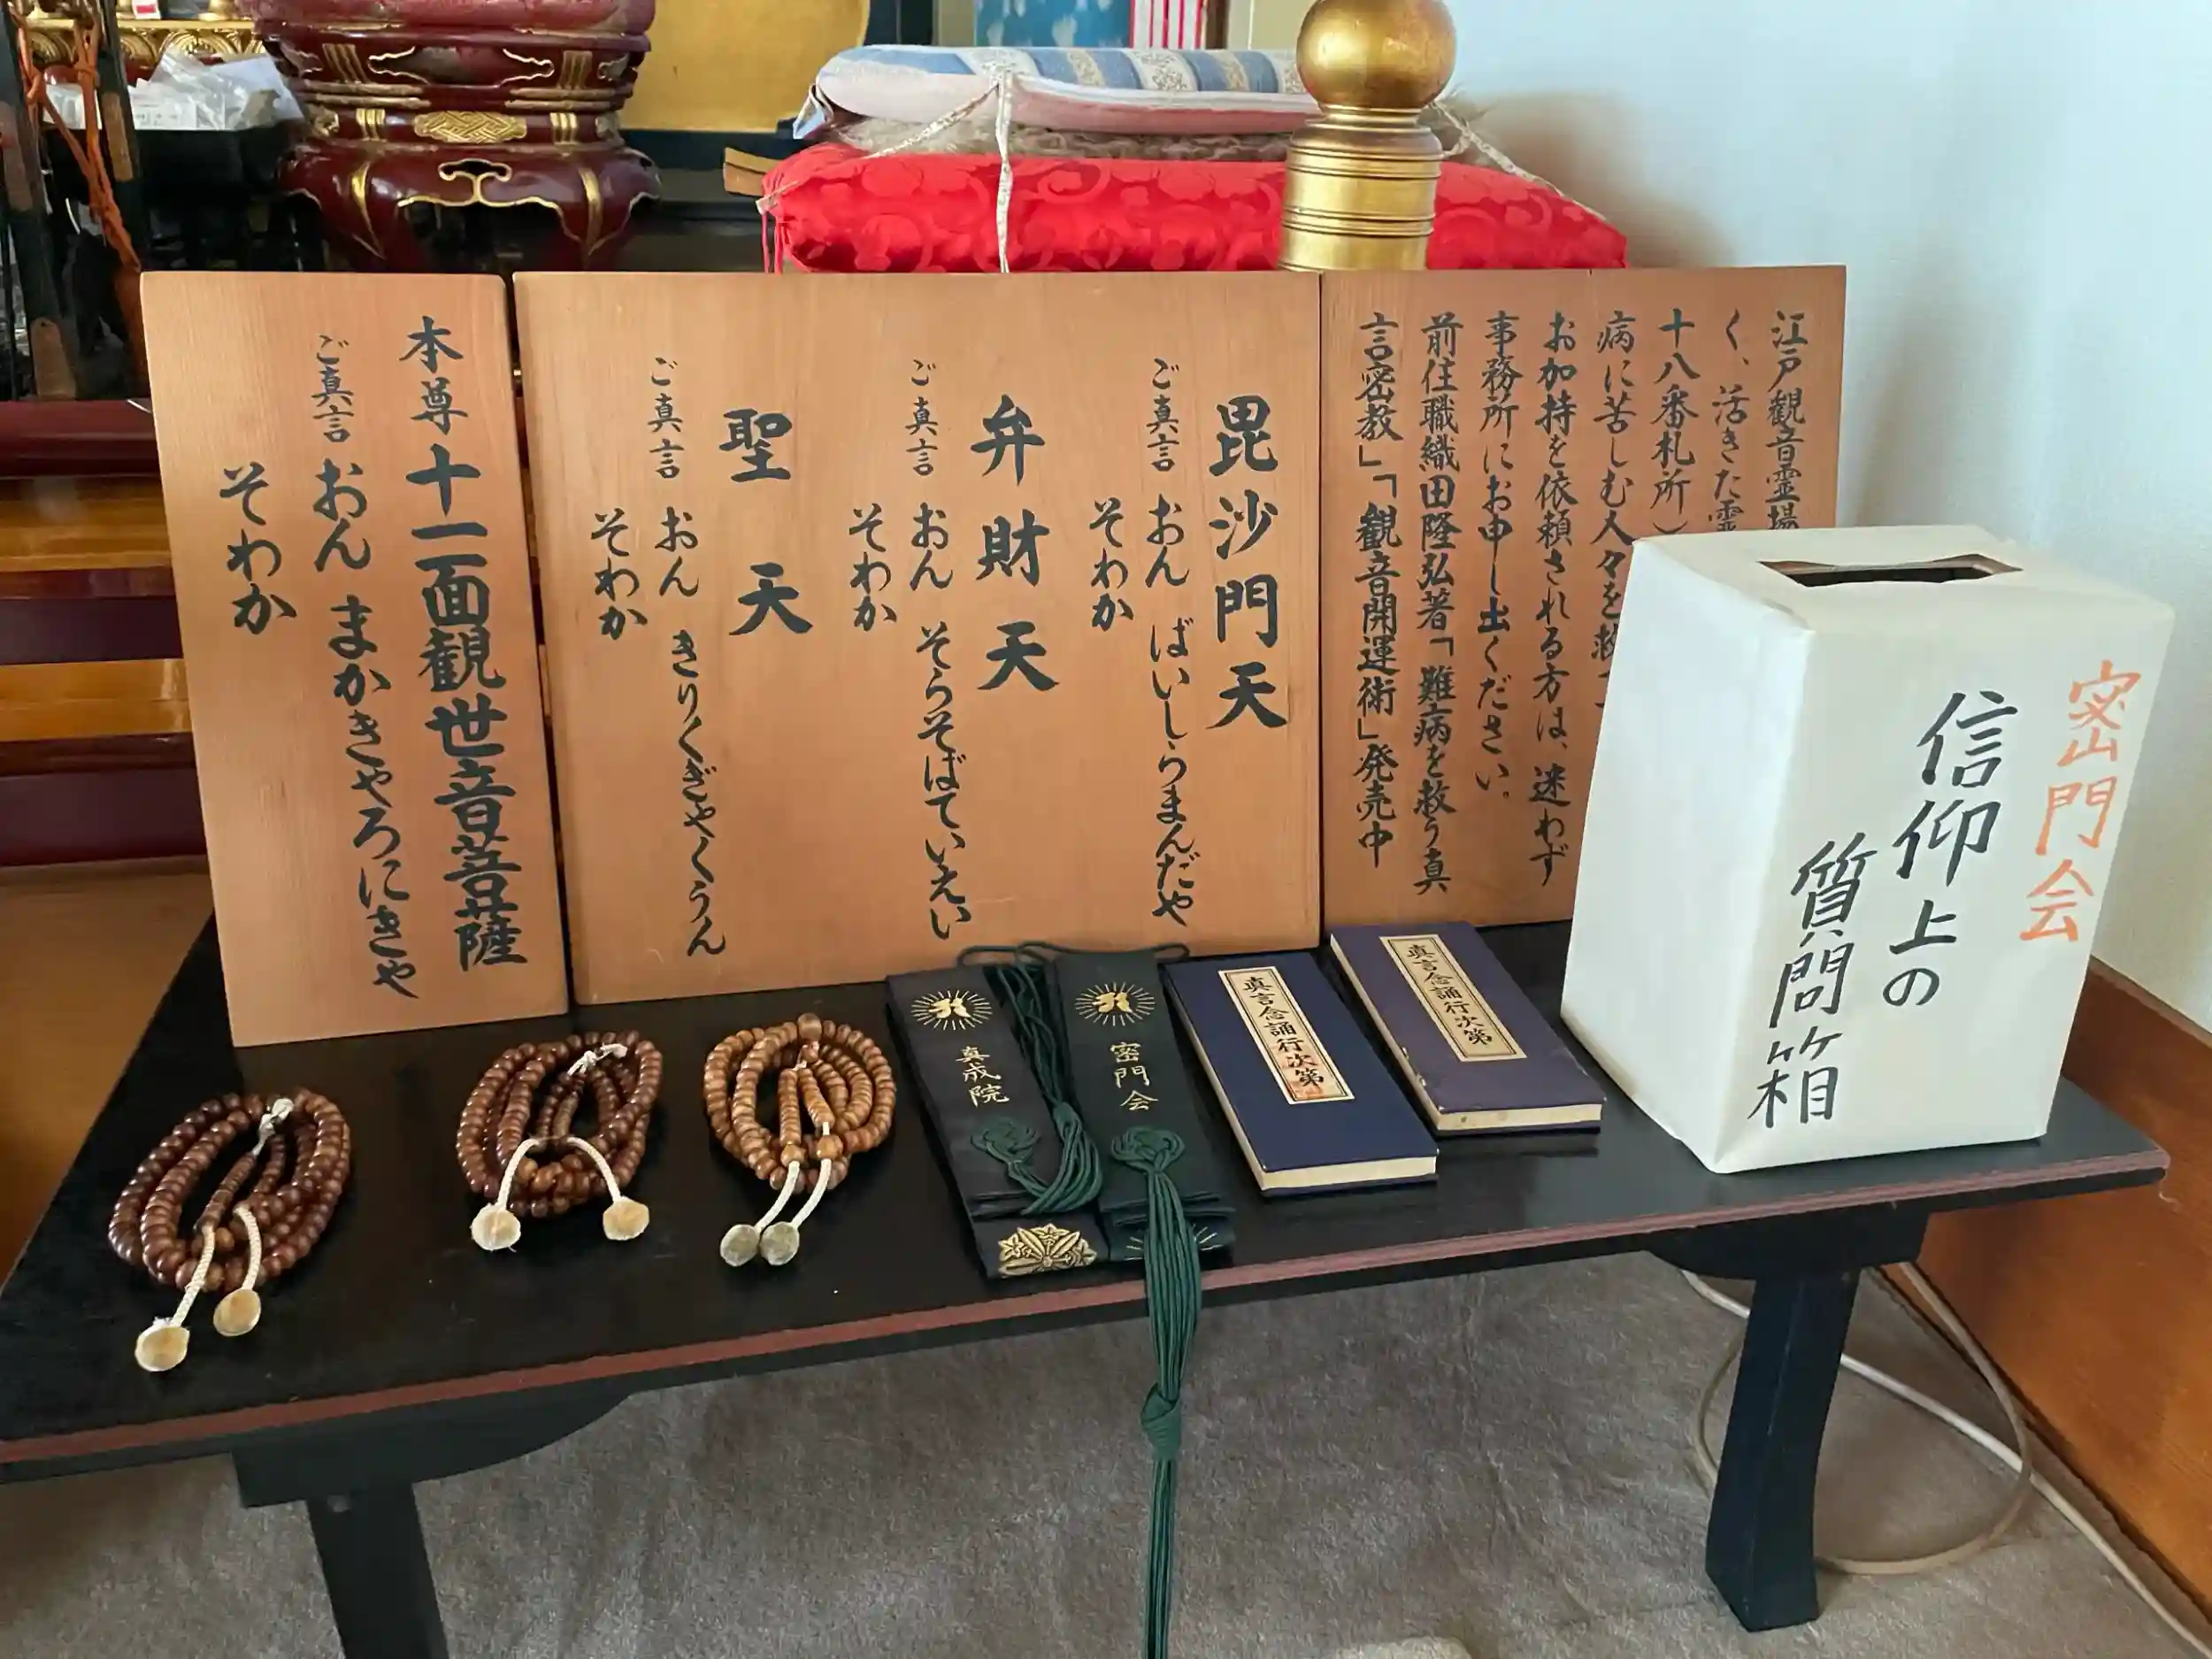 本尊 十一面観世音菩薩
ご真言 おん まかきやろにきや
そわか
毘沙門天
ご真言 おん ばいしらまんだや
そわか
弁財天
ご真言 おん そらそばていえい
そわか
聖天
ご真言 おん きりくぎやくうん
そわか
江戸観音霊場
く、活きた霊
十八番札所）
病に苦しむ人々を救
お加持を依頼される方は、迷わず
事務所にお申し出ください。
前住職織田隆弘著「難病を救う真
言密教」「観音開運術」発売中
密門会
信仰上の
質問箱
真成院
密門会
真言念誦行次第
真言念誦行次第